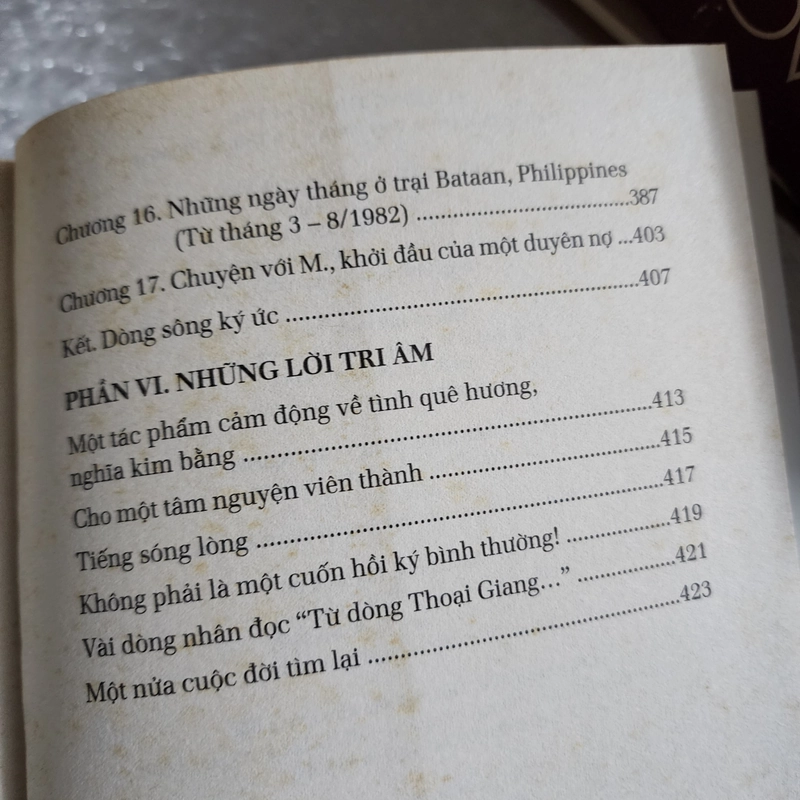 Chương 16. Những ngày tháng ở trại Bataan, Philippines
(Từ tháng 3 – 8/1982) ........................................387
Chương 17. Chuyện với M., khởi đầu của một duyên nợ ...403
Kết. Dòng sông ký ức ........................................407
PHẦN VI. NHỮNG LỜI TRI ÂM
Một tác phẩm cảm động về tình quê hương,
nghĩa kim bằng ........................................413
Cho một tâm nguyện viên thành ........................................415
Tiếng sóng lòng ........................................417
Không phải là một cuốn hồi ký bình thường! ....................419
Vài dòng nhân đọc “Từ dòng Thoại Giang...” ....................421
Một nửa cuộc đời tìm lại ........................................423